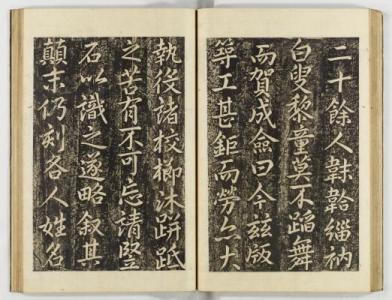 二十餘人韎韐緇衲
白叟黎童莫不蹈舞
而賀成僉曰今茲版
築工甚鉅而勞亦大
執役諸校櫛沐跰胝
之苦有不可忘請豎
石以識之遂略敘其
顛末仍刻各人姓名